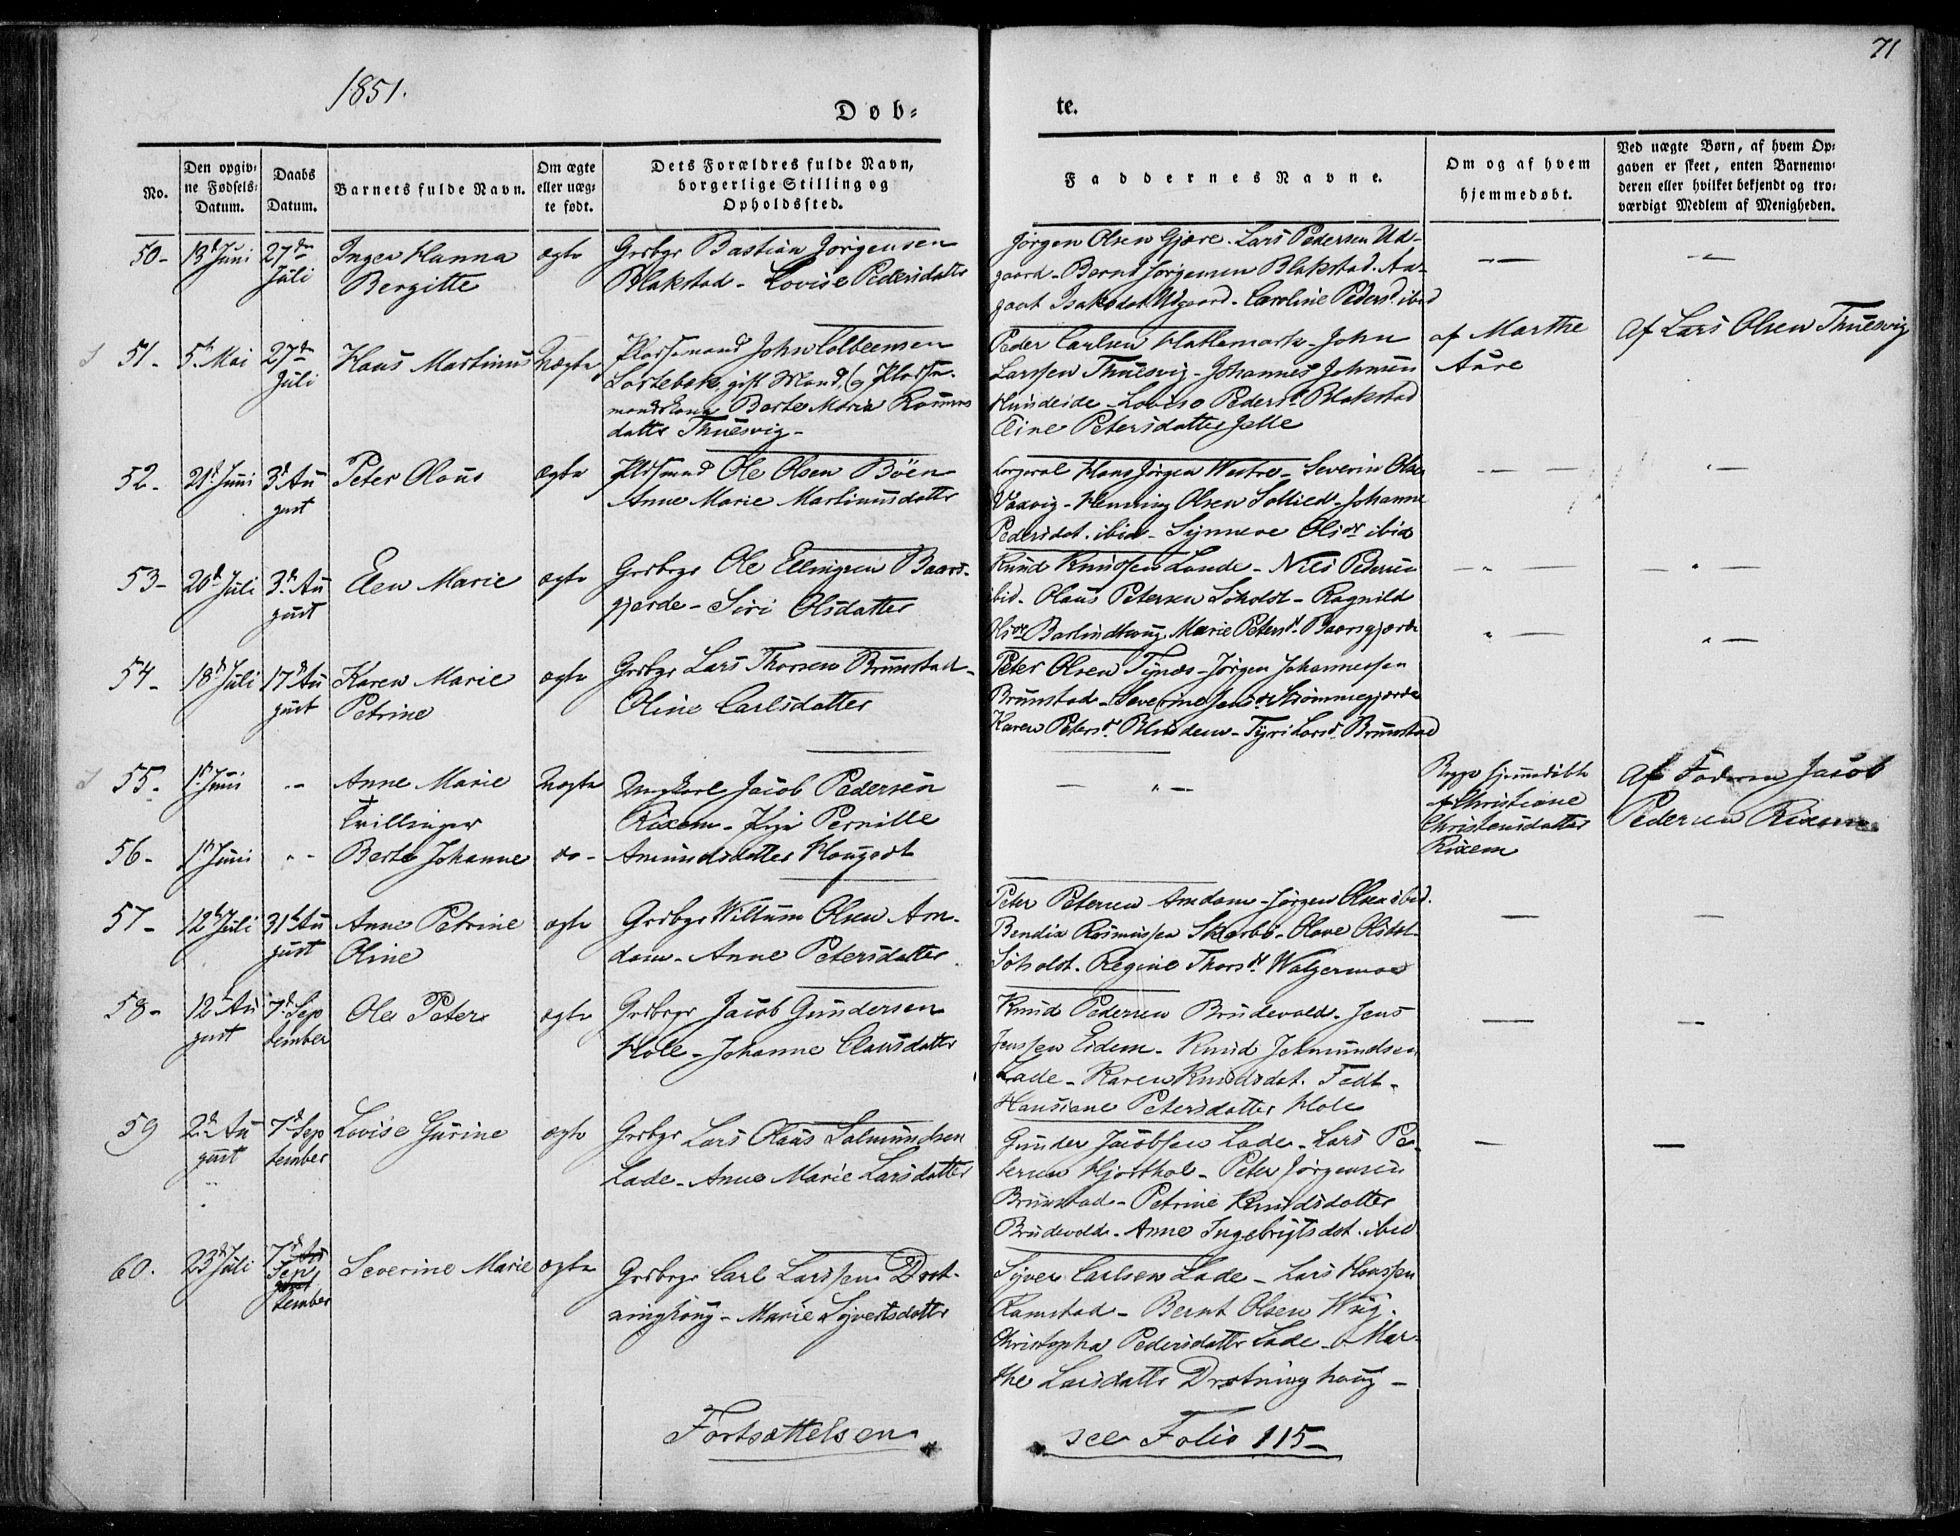 71
1851.
Døb-
te.
No.
Den opgiv-
ne Fødsels-
Datum.
Daabs
Datum.
Barnets fulde Navn.
Om ægte
eller uæg-
te født.
Dets Forældres fulde Navn,
borgerlige Stilling og
Opholdssted.
Faddernes Navne.
Om og af hvem
hjemmedøbt.
Ved uægte Børn, af hvem Op-
gaven er skeet, enten Barnemo-
deren eller hvilket bekjendt og tro-
værdigt Medlem af Menigheden.
50-
13d Juni
27de
Juli
Inger Hanna
Bergitte
ægte
Grdbgr Bastian Jørgensen
Blakstad - Lovise Pedersdatter
Jørgen Olsen Gjære. Lars Pedersen Ud-
gaard - Bernd Jørgensen Blakstad. Aa-
gaat Isaksdat Udgaard. Caroline Pedersd. ibid
51-
5te Mai
27de
Juli
Hans Martinus
Uægte
Pladsmand John Colbeensen
gift Mand, og Pladss-
mandskone Berte Maria
datter Thuesvig-
Peder Carlsen Hatlemark - John
Larssen Thuesvig - Johannes Johnsen
Hundeide - Lovise Pedersd. Blakstad
Eline Petersdatter Jelle
af Marthe
Aure
Af Lars Olsen Thuesvig
52-
21d Juni
3d Au
gust
Peter Olaus
ægte
Pladsmand Ole Olsen Böen
Anne Marie Martinusdatter
Corporal Hans Jørgen - Severin Olsen
Vaxvig - Henning Olsen Sollied - Johanne
Pedersdat. ibid - Synneve Olsdr ibid
53-
20d Juli
3d Au
gust
Elen Marie
ægte
Grdbgr Ole Ellingsen Baars-
gjerde - Siri Olsdatter
Knud Knudsen Lande - Nils Pedersen
ibid. Olaus Petersen Søholdt - Ragnild
Olsdr Marie Petersd. Baarsgjærde
54-
18d Juli
17d Au
gust
Karen Marie
Petrine
ægte
Grdbgr Lars Thorsen Brunstad-
Oline Carlsdatter
Peter Olsen Tynæs - Jørgen Johannessen
Brunstad - Severine Jensdr Strømmegjerde
Karen Petersdr Blindem - Tyri Larsd. Brunstad
55-
1ste Juni
Anne Marie
Tvillinger
Uægte
Ungkarl Jacob Pedersen
Rixem - Pige Pernille
Rixem
hjemmedøbte
af Christiane
Christensdatter
Af Faderen Jacob
Pedersen Rixem
56-
1ste Juni
Berte Johanne
do-
Amundsdatter Hougedt
57-
12te Juli
31te Au
gust
Anne Petrine
Oline
ægte
Grdbgr Willum Olsen Am-
dam - Anne Petersdatter
Peter Petersen Amdam - Jørgen Olsen ibid.
Bendix Rasmussen Skarbø - Olave Olsdat-
Søholdt. Regine Thorsdr Walgermoe
58-
12te Au
gust
7d Sep
tember
Ole Peter
ægte
Grdbgr Jacob Gundersen
Hole - Johanne Clausdatter
Knud Pedersen Brudevold - Jens
Jenssen Eidem - Knud Johmundsen
Lade - Karen Knudsdat. Fedt-
Hansiane Petersdatter Hole
59
2d Au
gust
7d Sep
tember
Lovise Gurine
ægte
Grdbgr Lars Olaus Salmundsen
Lade - Anne Marie Larsdatter
Gunder Jacobsen Lade - Lars Pe-
tersen Hjorthol - Peter Jørgensen
Brunstad - Petrine Knudsdatter
Brudevold - Anne Ingebrigtsdat. ibid
60.
23d Juli
7d
Sep
tember
Severine Marie
ægte
Grdbgr Carl Larssen Drot-
ninghoug - Marie Syvertsdatter
Syver Carlsen Lade - Lars Hanssen
Ramstad - Bernt Olsen Wiig.
Christopha Pedersdatter Lade - Mar-
the Larsdatter Drotninghoug -
Fortsættelsen
see Folio 115-